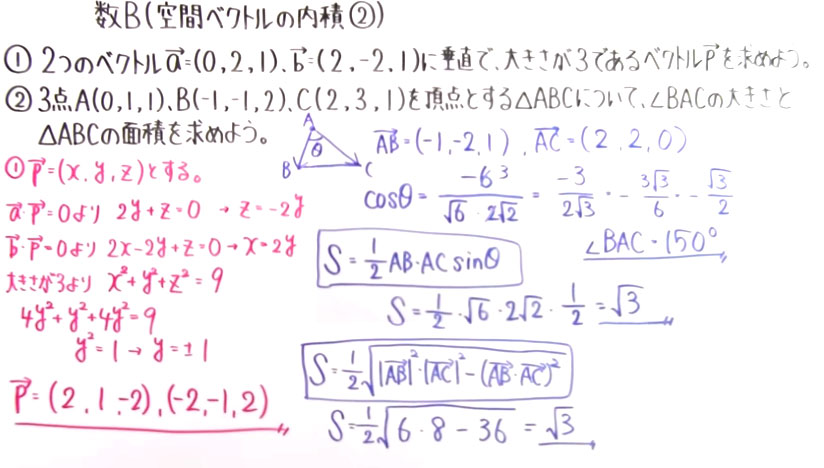 数B(空間ベクトルの内積②)
① 2つのベクトルa⃗=(0,2,1)、b⃗=(2,-2,1)に垂直で、大きさが3であるベクトルp⃗を求めよう。
② 3点A(0,1,1)、B(-1,-1,2)、C(2,3,1)を頂点とする△ABCについて、∠BACの大きさと
△ABCの面積を求めよう。
① p⃗=(x,y,z)とする。
a⃗・p⃗=0より 2y+z=0 → z=-2y
b⃗・p⃗=0より 2x-2y+z=0→x=2y
大きさが3より x²+y²+z²=9
4y²+y²+4y²=9
y²=1→y=±1
p⃗=(2,1,-2),(-2,-1,2)
A
θ
B C
AB⃗=(-1,-2,1), AC⃗=(2,2,0)
cosθ= -6 3/√6・2√2 = -3/2√3 = -3√3/6 = -√3/2
∠BAC=150°
S=1/2AB・AC sinθ
S=1/2・√6・2√2・1/2=√3
S=1/2√|AB⃗|²・|AC⃗|²-(AB⃗・AC⃗)²
S=1/2√6・8-36=√3